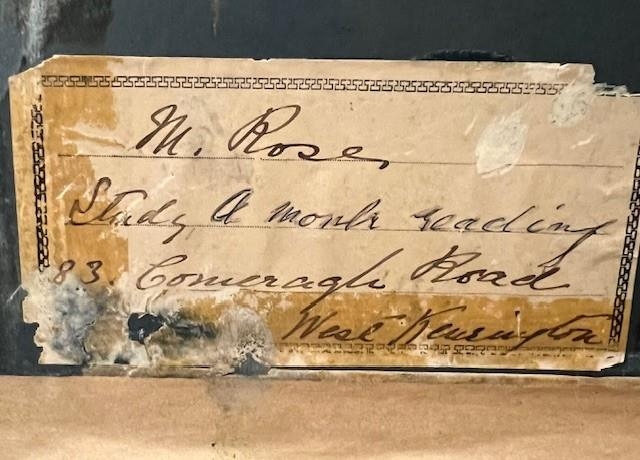 M. Rose,
Study A monk reading
83. Comeragh Road
West Kensington